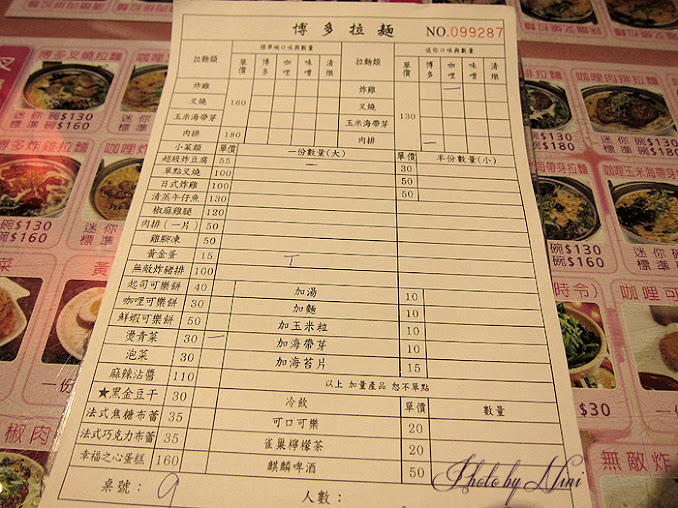 博多拉麵 NO.099287
拉麵類 單價 標準碗口味與數量 博多 咖哩 味噌 清燉 拉麵類 單價 迷你口味與數量 博多 咖哩 味噌 清燉
炸雞 160 炸雞 130 一
叉燒 叉燒
玉米海帶芽 玉米海帶芽
肉排 180 肉排 一
小菜類 單價 一份數量(大) 單價 半份數量(小)
超級炸豆腐 55 一 30
單點叉燒 100 50
日式炸雞 100 50
清蒸牛仔魚 130
椒麻雞腿 120
肉排(一片) 50
雞腳凍 50
黃金蛋 15 T
無敵炸豬排 100
起司可樂餅 40 加湯 10
咖哩可樂餅 30 加麵 10
鮮蝦可樂餅 50 加玉米粒 10
燙青菜 30 一 加海帶芽 10
泡菜 30 加海苔片 15
麻辣沾醬 110 以上 加量產品 恕不單點
★黑金豆干 30 冷飲 單價 數量
法式焦糖布蕾 35 可口可樂 20
法式巧克力布蕾 35 雀巢檸檬茶 20
幸福之心蛋糕 160 麒麟啤酒 50
桌號： 9 人數：
Photo by Nini
博多叉燒拉麵
迷你碗$130
標準碗$160
博多炸雞拉麵
咖哩肉排拉麵
迷你碗$130
標準碗$180
咖哩玉米海帶芽拉麵
碗$130
碗$160
迷你碗
標準碗
$30
一份
無敵炸